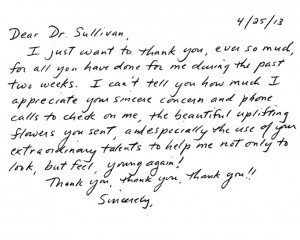 4/25/13
Dear Dr. Sullivan,
I just want to thank you, ever so much,
for all you have done for me during the past
two weeks. I can't tell you how much I
appreciate your sincere concern and phone
calls to check on me, the beautiful uplifting
flowers you sent, and especially the use of your
extraordinary talents to help me not only to
look, but feel, young again!
Thank you, thank you, thank you!!
Sincerely,